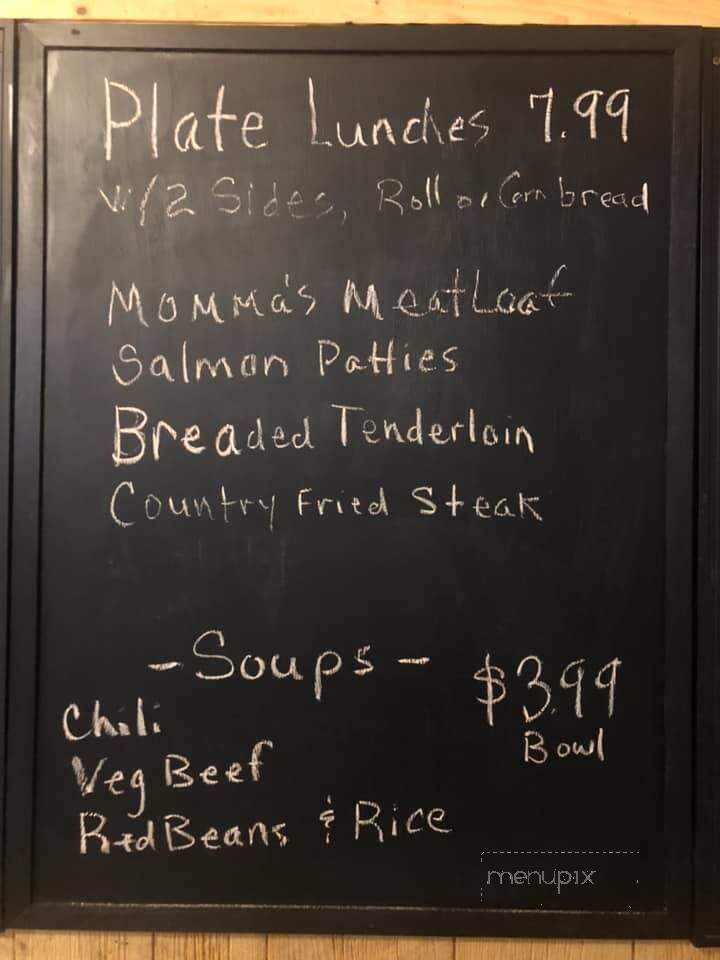 Plate Lunches 7.99
w/2 Sides, Roll or Corn bread
Momma's Meatloaf
Salmon Patties
Breaded Tenderloin
Country Fried Steak
- Soups - $3.99
Bowl
Chili
Veg Beef
Red Beans & Rice
menupix